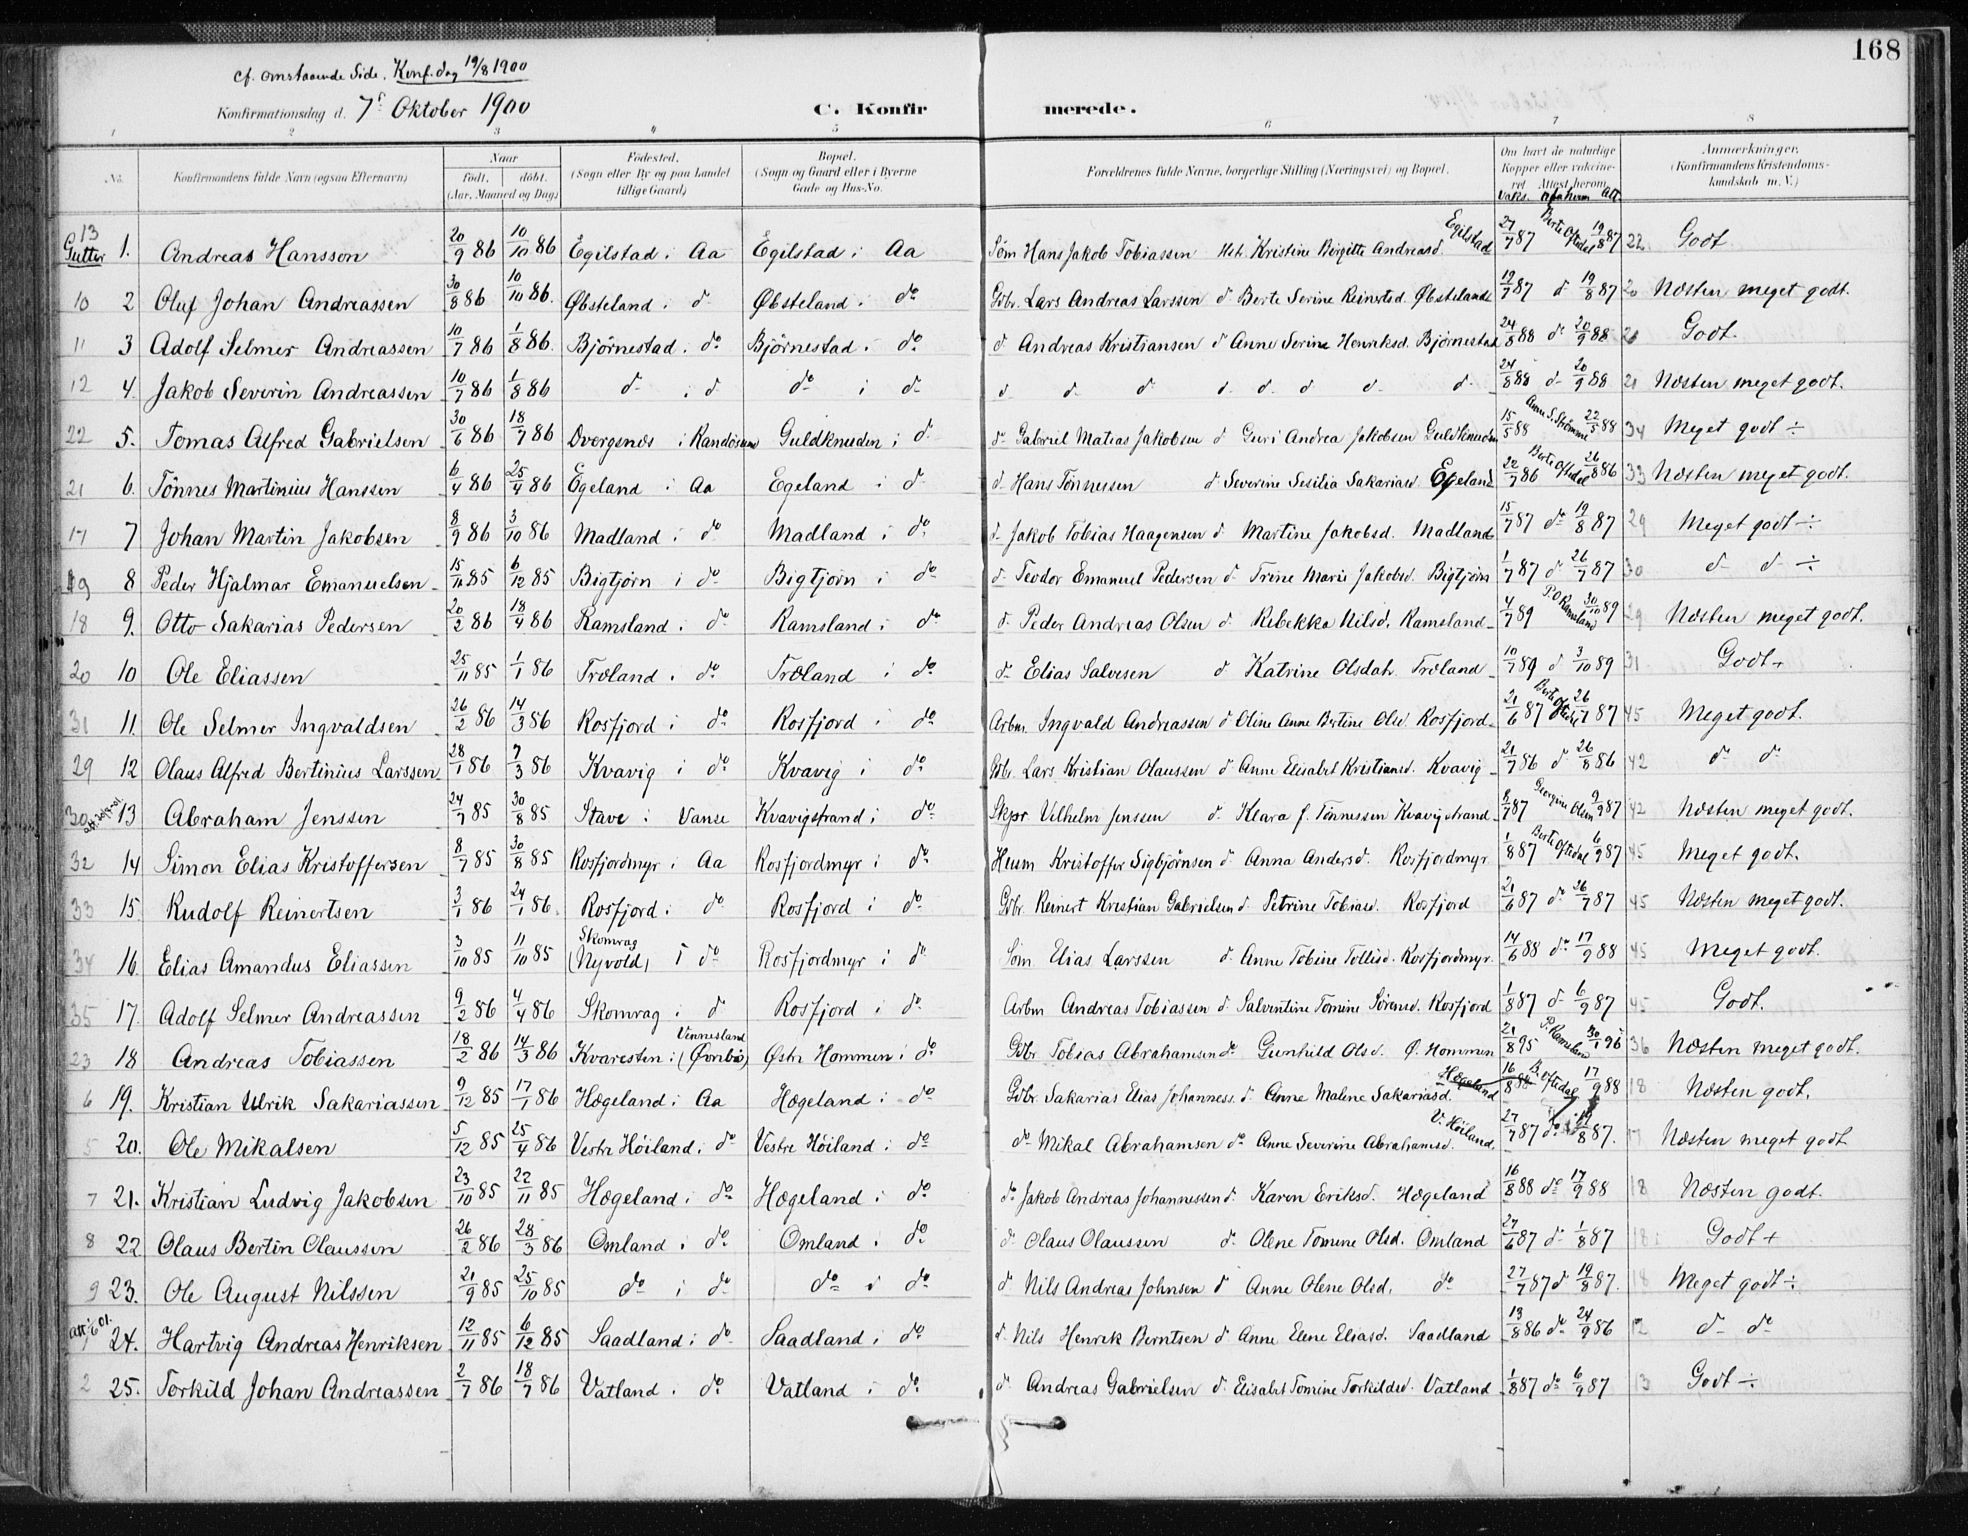 168
cf. omstaaende Side. Konf.dag 19/8 1900
Konfirmationsdag d. 7de Oktober 1900 C. Konfirmerede.
1 2 3 4 5 6 7 8
No. Konfirmandens fulde Navn (ogsaa Efternavn) Naar født, døbt. (Aar, Maaned og Dag) Fødested. (Sogn eller By og paa Landet tillige Gaard) Bopæl. (Sogn og Gaard eller i Byerne Gade og Hus-No.) Forældrenes fulde Navne, borgerlige Stilling (Næringsvei) og Bopæl. Om havt de naturlige Kopper eller vaksineret Attest herom. Anmærkninger. (Konfirmandens Kristendomskundskab m. V.)
Vaks. Att.
Gutter
13 1. Andreas Hanssen 20/9 86 10/10 86 Egilstad i Aa Egilstad i Aa Søm Hans Jakob Tobiassen Kristine Birgitte Andreasd. Egilstad 27/7 87 Berte Oftedal 19/8 87 22 Godt
10 2 Oluf Johan Andreassen 30/8 86 10/10 86. Øbsteland i do Øbsteland i do Gbr. Lars Andreas Larssen do Berte Serine Reinertsd. Øbsteland 19/7 87 do 19/8 87 20 Næsten meget godt.
11 3 Adolf Selmer Andreassen 10/7 86 1/8 86. Bjørnestad i do Bjørnestad i do do Andreas Kristiansen do Anne Serine Henriksd. Bjørnestad 24/8 88 do 20/9 88 Godt.
12 4. Jakob Severin Andreassen 10/7 86 1/8 86 do i do do i do do do do do do do do do 24/8 88 do 20/9 88 21 Næsten meget godt.
22 5. Tomas Alfred Gabrielsen 30/6 86 18/7 86 Dvergsnes i Randøsund Guldknuden i do do Gabriel Matias Jakobsen do Guri Andrea Jakobsen Guldknuden 15/5 88 Anne S. Strømme 22/5 88 34 Meget godt ÷
21 6. Tønnes Martinius Hanssen 6/4 86 25/4 86 Egeland i Aa Egeland i do do Hans Tønnessen do Severine Sesilia Sakariasd. Egeland 22/7 86 Berte Oftedal 26/8 86 33 Næsten meget godt.
17 7 Johan Martin Jakobsen 8/9 86 3/10 86 Madland i do Madland i do do Jakob Tobias Haagensen do Martine Jakobsd. Madland 15/7 87 do 19/8 87 29 Meget godt ÷
19 8 Peder Hjalmar Emanuelsen 15/11 85 6/12 85 Bigtjørn i do Bigtjørn i do do Teodor Emanuel Pedersen do Trine Marie Jakobsd. Bigtjørn 1/7 87 do 26/7 87 30 do do ÷
18 9. Otto Sakarias Pedersen 20/2 86 18/4 86 Ramsland i do Ramsland i do do Peder Andreas Olsen do Rebekka Nilsd. Ramsland 4/7 89 P.O Ramsland 30/10 89 29 Næsten meget godt.
20 10 Ole Eliassen 25/11 85 1/1 86 Træland i do Træland i do do Elias Salvesen do Katrine Olsdatr Træland 10/7 89 do 3/10 89 31 Godt +
31 11. Ole Selmer Ingvaldsen 26/2 86 14/3 86 Rosfjord i do Rosfjord i do Arbm. Ingvald Andreassen do Oline Anne Bertine Olsd. Rosfjord 21/6 87 Berte Oftedal 26/7 87 45 Meget godt.
29 12 Olaus Alfred Bertinius Larssen 28/1 86 7/3 86 Kvavig i do Kvavig i do Gbr. Lars Kristian Olaussen do Anne Elisabet Kristiansd. Kvavig 21/7 86 do 26/8 86 42 do do
30 13 Abraham Jenssen 24/7 85 30/8 85 Stave i Vanse Kvavigstrand i do Skpr. Vilhelm Jenssen do Klara f. Tønnessen Kvavigstrand 8/7 87 Georgine Olsen 9/9 87 42 Næsten meget godt.
32 14 Simon Elias Kristoffersen 8/7 85 30/8 85 Rosfjordmyr i Aa Rosfjordmyr i do Husm Kristoffer Sigbjørnsen do Anna Andersd. Rosfjordmyr 1/8 87 Berte Oftedal 6/9 87 45 Meget godt.
33 15. Rudolf Reinertsen 3/1 86 24/1 86. Rosfjord i do Rosfjord i do Gbr. Reinert Kristian Gabrielsen do Petrine Tobiasd. Rosfjord 21/6 87 do 26/7 87 45 Næsten meget godt.
34 16. Elias Amandus Eliassen 3/10 85 11/10 85 Skomrag (Nyvold) i do Rosfjordmyr i do Søm. Elias Larssen do Anne Tobine Tollisd. Rosfjordmyr. 14/6 88 do 17/9 88 45 Meget godt.
35 17. Adolf Selmer Andreassen 9/2 86 4/4 86 Skomrag i do Rosfjord i do Arbm Andreas Tobiassen do Salventine Tomine Sørensd. Rosfjord 1/8 87 do 6/9 87 45 Godt.
23 18 Andreas Tobiassen 18/2 86 14/3 86 Kvaresten i Vennesland (Øvrebø) Østr Hommen i do Gbr Tobias Abrahamsen do Gunhild Olsd. Ø. Hommen 21/8 95 P. Ramsland 30/1 96 36 Næsten meget godt.
6 19. Kristian Ulrik Sakariassen 9/12 85 17/1 86 Hægeland i Aa Hægeland i do Gbr. Sakarias Elias Johanness. do Anne Malene Sakariasd. Hægeland 16/8 88 B. Oftedal 17/9 88 18 Næsten godt.
5 20. Ole Mikalsen 5/12 85 25/4 86 Vestre Høiland i do Vestre Høiland i do do Mikal Abrahamsen do Anne Severine Abrahamsd. V. Høiland. 27/7 87 do 19/8 87. 17 Næsten meget godt
7 21. Kristian Ludvig Jakobsen 23/10 85 22/11 85 Hægeland i do Hægeland i do do Jakob Andreas Johannessen do Karen Eriksd. Hægeland 16/8 88 do 17/9 88 18 Næsten godt.
8 22 Olaus Bertin Olaussen 26/2 86 28/3 86 Omland i do Omland i do do Olaus Olaussen do Olene Tomine Olsd. Omland 27/6 87 do 1/8 87 18 Godt +
9 23. Ole August Nilssen 21/9 85 25/10 85 do i do do i do do Nils Andreas Johnsen do Anne Olene Olsd. do 27/7 87 do 19/8 87. 18 Meget godt ÷
24. Hartvig Andreas Henriksen 12/11 85 6/12 85 Saadland i do Saadland i do do Nils Henrik Berntsen do Anne Elene Eliasd. Saadland 13/8 86 do 24/9 86 12 do do
2 25. Torkild Johan Andreassen 2/7 86 18/7 86 Vatland i do Vatland i do do Andreas Gabrielsen do Elisabet Tomine Torkildsd. Vatland 1/8 87 do 6/9 87 13 Godt ÷